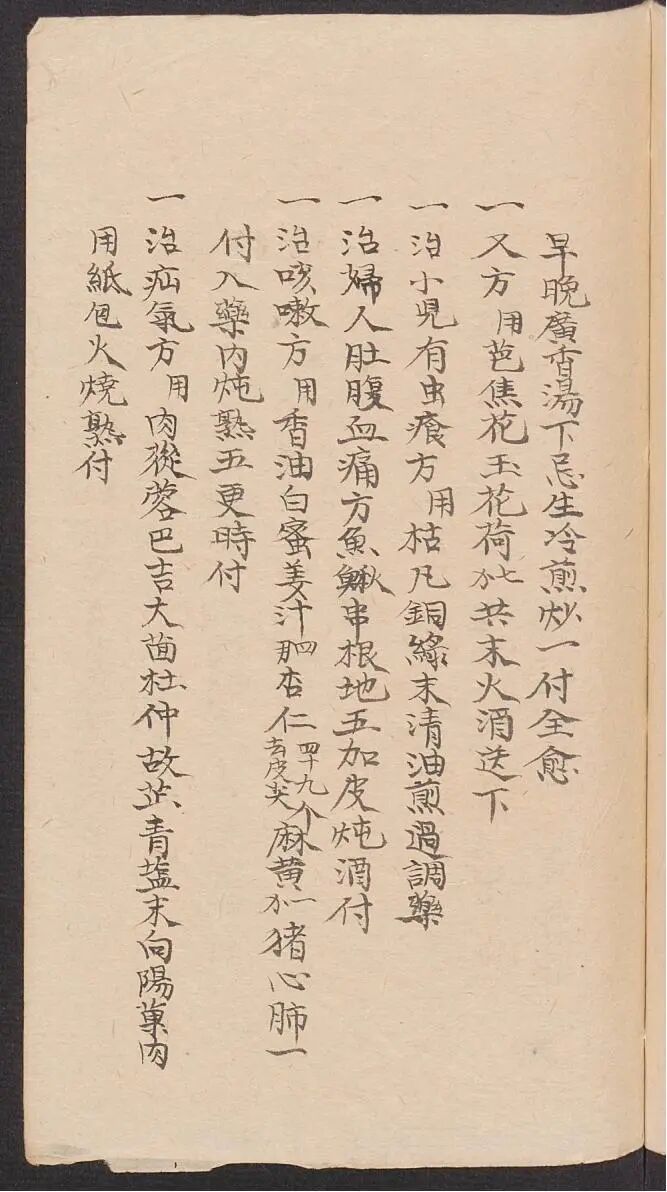 早晚廣香湯下忌生冷煎炒一付全愈
一 又方用芭焦花玉花荷七共末火酒送下
一 治小児有虫痒方用枯凡銅綠末清油煎過調藥
一 治婦人肚腹血痛方魚鰍串根地五加皮炖酒付
一 治咳嗽方用香油白蜜姜汁四杏仁四十九个去皮尖麻黄一猪心肺一
付入藥内炖熟五更時付
一 治疝氣方用肉蓯蓉巴吉大茴杜仲故芷青塩末向陽菓肉
用紙包火燒熟付